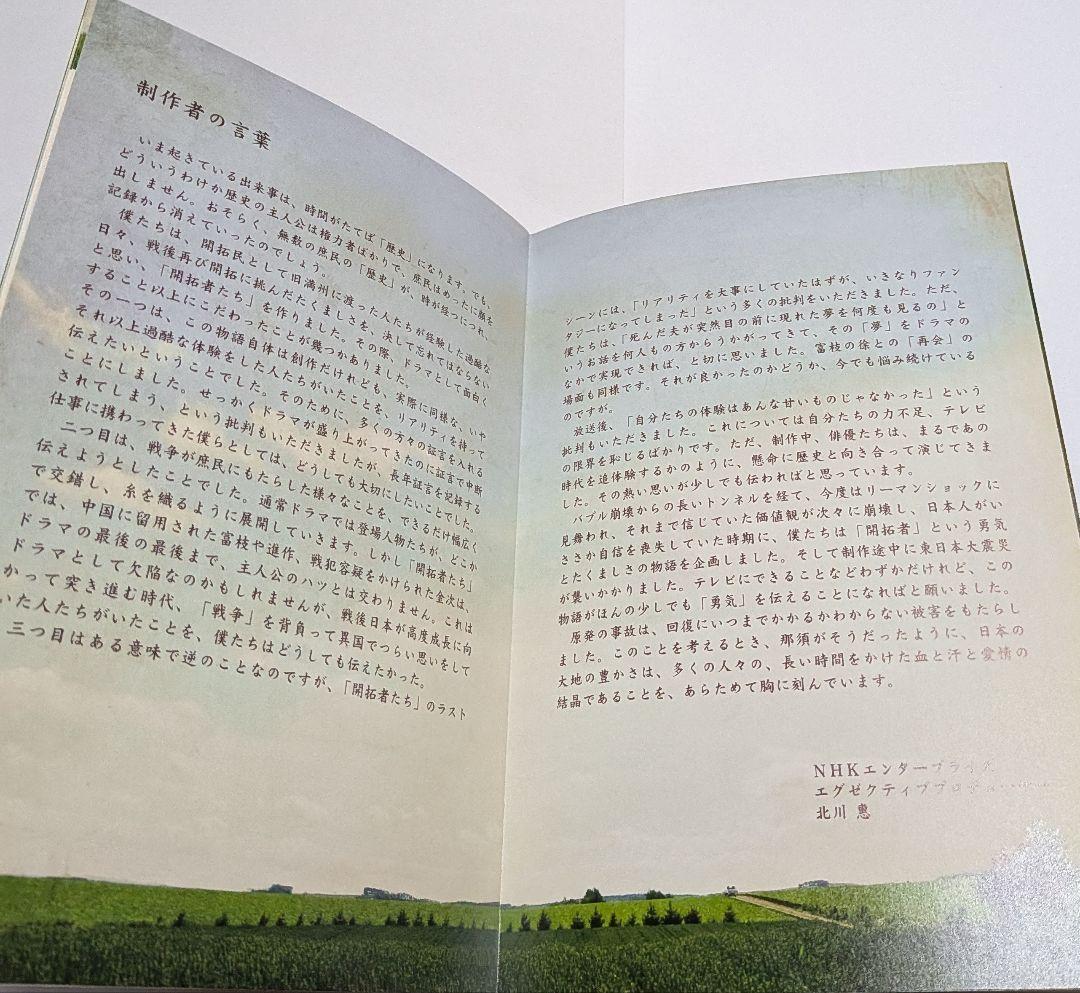 制作者の言葉
いま起きている出来事は、時間がたてば「歴史」になります。でも、
どういうわけか歴史の主人公は権力者ばかりで、庶民はめったに顔を
出しません。おそらく、無数の庶民の「歴史」が、時が経つにつれ、
記録から消えていったのでしょう。
僕たちは、開拓民として旧満州に渡った人たちが経験した過酷な
日々、戦後再び開拓に挑んだたくましさを、決して忘れてはならない
と思い、「開拓者たち」を作りました。その際、ドラマとして面白く
すること以上にこだわったことが幾つかありました。
その一つは、この物語自体は創作だけれども、実際に同様な、いや
それ以上過酷な体験をした人たちがいたことを、リアリティを持って
伝えたいということでした。そのために、多くの方々の証言を入れる
ことにしました。せっかくドラマが盛り上がってきたのに証言で中断
されてしまう、という批判もいただきましたが、長年証言を記録する
仕事に携わってきた僕らとしては、どうしても大切にしたいことでした。
二つ目は、戦争が庶民にもたらした様々なことを、できるだけ幅広く
伝えようとしたことでした。通常ドラマでは登場人物たちが、どこか
で交錯し、糸を織るように展開していきます。しかし「開拓者たち」
では、中国に留用された富枝や進作、戦犯容疑をかけられた金次は、
ドラマの最後の最後まで、主人公のハツとは交わりません。これは
ドラマとして欠陥なのかもしれませんが、戦後日本が高度成長に向
かって突き進む時代、「戦争」を背負って異国でつらい思いをして
いた人たちがいたことを、僕たちはどうしても伝えたかった。
三つ目はある意味で逆のことなのですが、「開拓者たち」のラスト
シーンには、「リアリティを大事にしていたはずが、いきなりファン
タジーになってしまった」という多くの批判をいただきました。ただ、
僕たちは、「死んだ夫が突然目の前に現れた夢を何度も見るの」と
いうお話を何人もの方からうかがってきて、その「夢」をドラマの
なかで実現できれば、と切に思いました。富枝の徐との「再会」の
場面も同様です。それが良かったのかどうか、今でも悩み続けている
のですが。
放送後、「自分たちの体験はあんな甘いものじゃなかった」という
批判もいただきました。これについては自分たちの力不足、テレビ
の限界を恥じるばかりです。ただ、制作中、俳優たちは、まるであの
時代を追体験するかのように、懸命に歴史と向き合って演じてきま
した。その熱い思いが少しでも伝わればと思っています。
バブル崩壊からの長いトンネルを経て、今度はリーマンショックに
見舞われ、それまで信じていた価値観が次々に崩壊し、日本人がい
ささか自信を喪失していた時期に、僕たちは「開拓者」という勇気
とたくましさの物語を企画しました。そして制作途中に東日本大震災
が襲いかかりました。テレビにできることなどわずかだけれど、この
物語がほんの少しでも「勇気」を伝えることになればと願いました。
原発の事故は、回復にいつまでかかるかわからない被害をもたらし
ました。このことを考えるとき、那須がそうだったように、日本の
大地の豊かさは、多くの人々の、長い時間をかけた血と汗と愛情の
結晶であることを、あらためて胸に刻んでいます。
NHKエンタープライズ
エグゼクティブプロデューサー
北川 恵